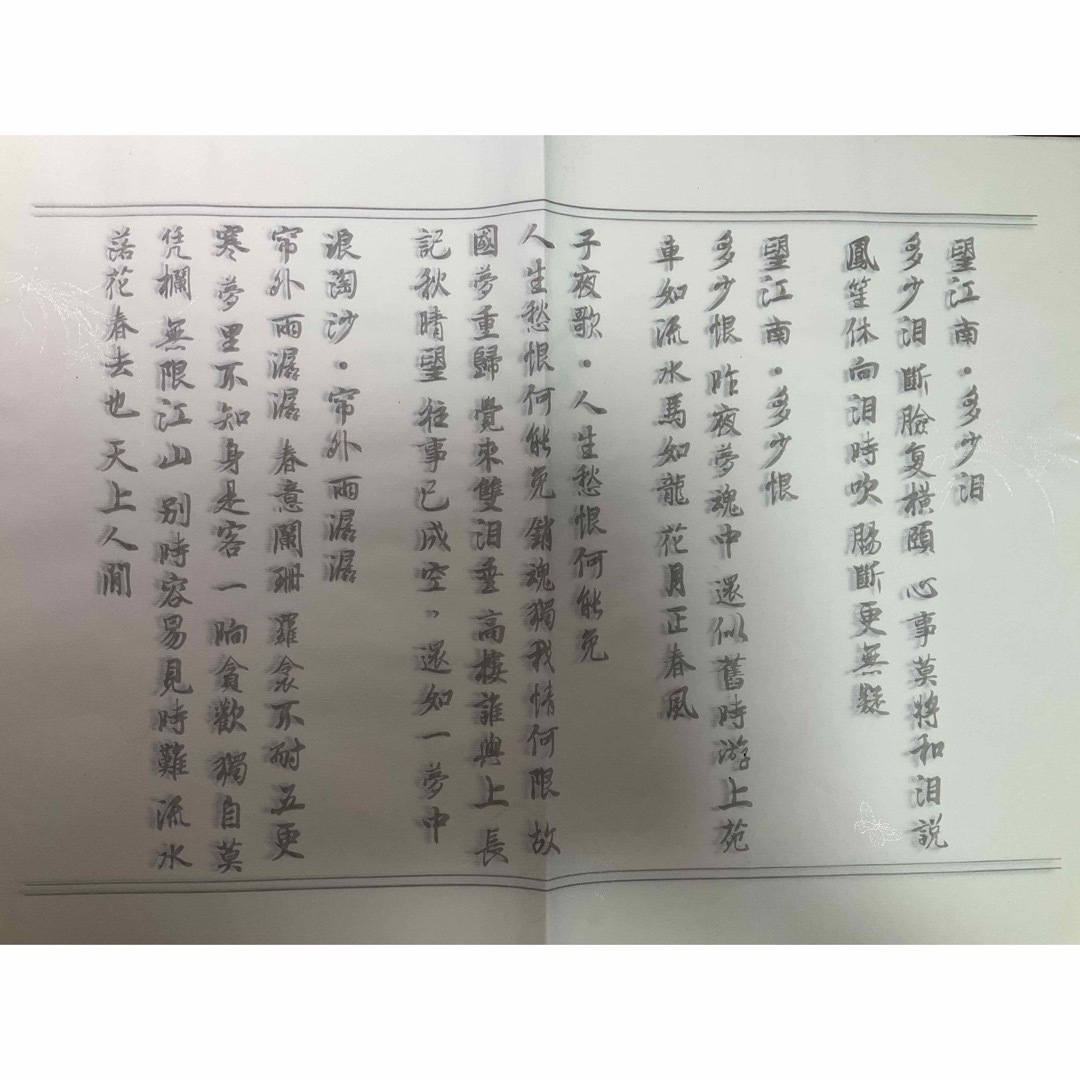 望江南·多少泪
多少泪 斷臉复横頤 心事莫將和泪説
鳳笙休向泪時吹 腸斷更無疑
望江南·多少恨
多少恨 昨夜夢魂中 還似舊時游上苑
車如流水馬如龍 花月正春風
子夜歌·人生愁恨何能免
人生愁恨何能免 銷魂獨我情何限 故
國夢重歸 覺來雙泪垂 高樓誰與上 長
記秋晴望 往事已成空。還如一夢中
浪淘沙·帘外雨潺潺
帘外雨潺潺 春意闌珊 羅衾不耐五更
寒 夢里不知身是客 一晌貪歡 獨自莫
凭欄 無限江山 别時容易見時難 流水
落花春去也 天上人間